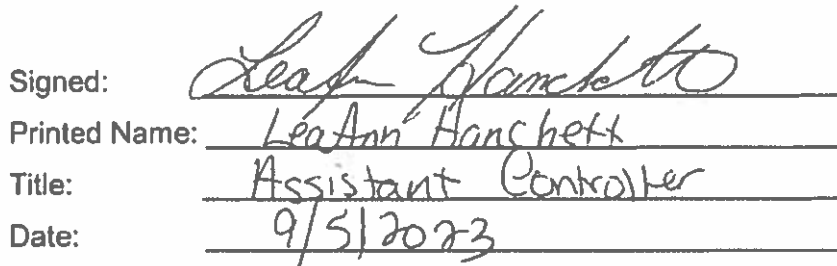 Signed: LeaAnn Hanchett
Printed Name: LeaAnn Hanchett
Title: Assistant Controller
Date: 9/5/2023